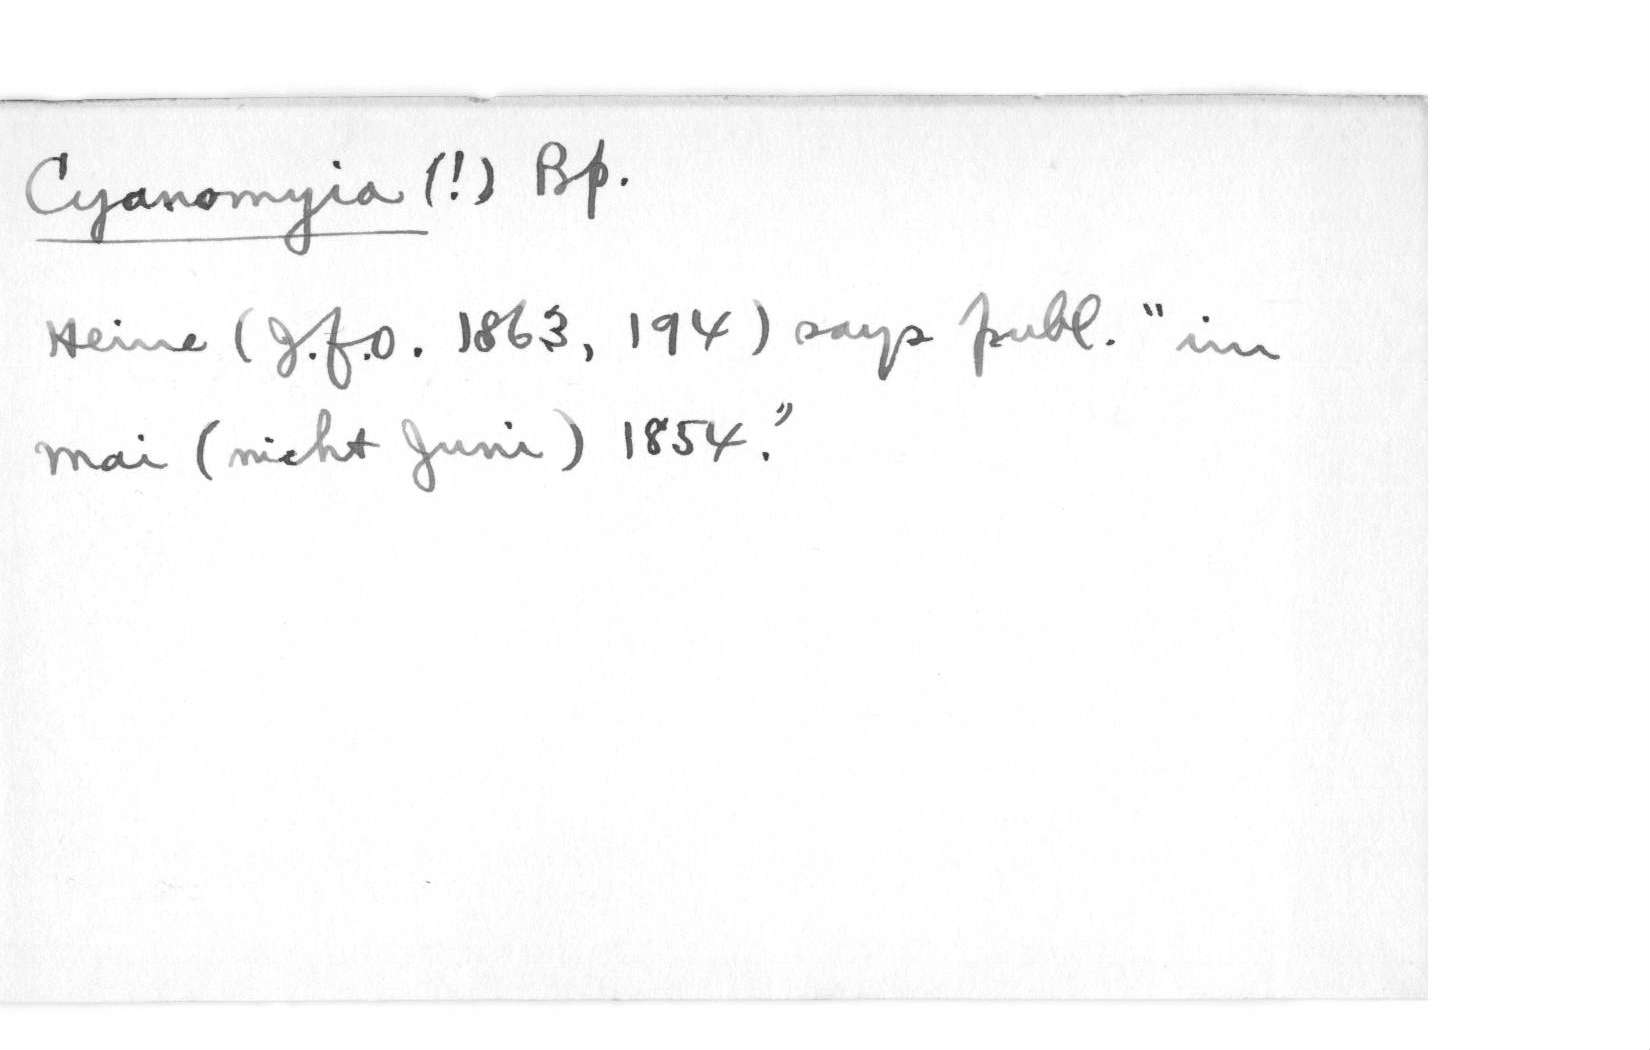 Cyanomyia (!) Bp.
Heine (J.f.O. 1863, 194) says publ. "im
Mai (nicht Juni) 1854."